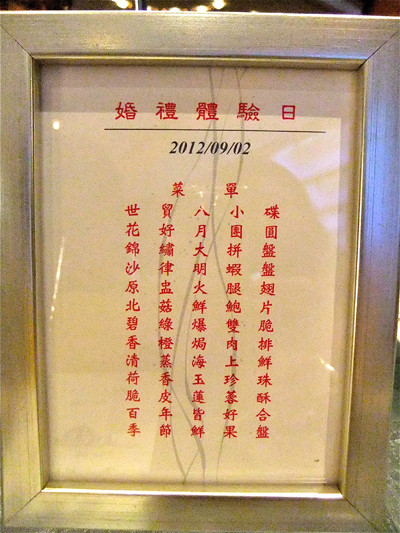 婚禮體驗日
2012/09/02
菜單
世貿八小碟
花好月團圓
錦繡大拼盤
沙律明蝦盤
原盅火腿翅
北菇鮮鮑片
碧綠爆雙脆
香橙焗肉排
清蒸海上鮮
荷香玉珍珠
脆皮蓮蓉酥
百年皆好合
季節鮮果盤